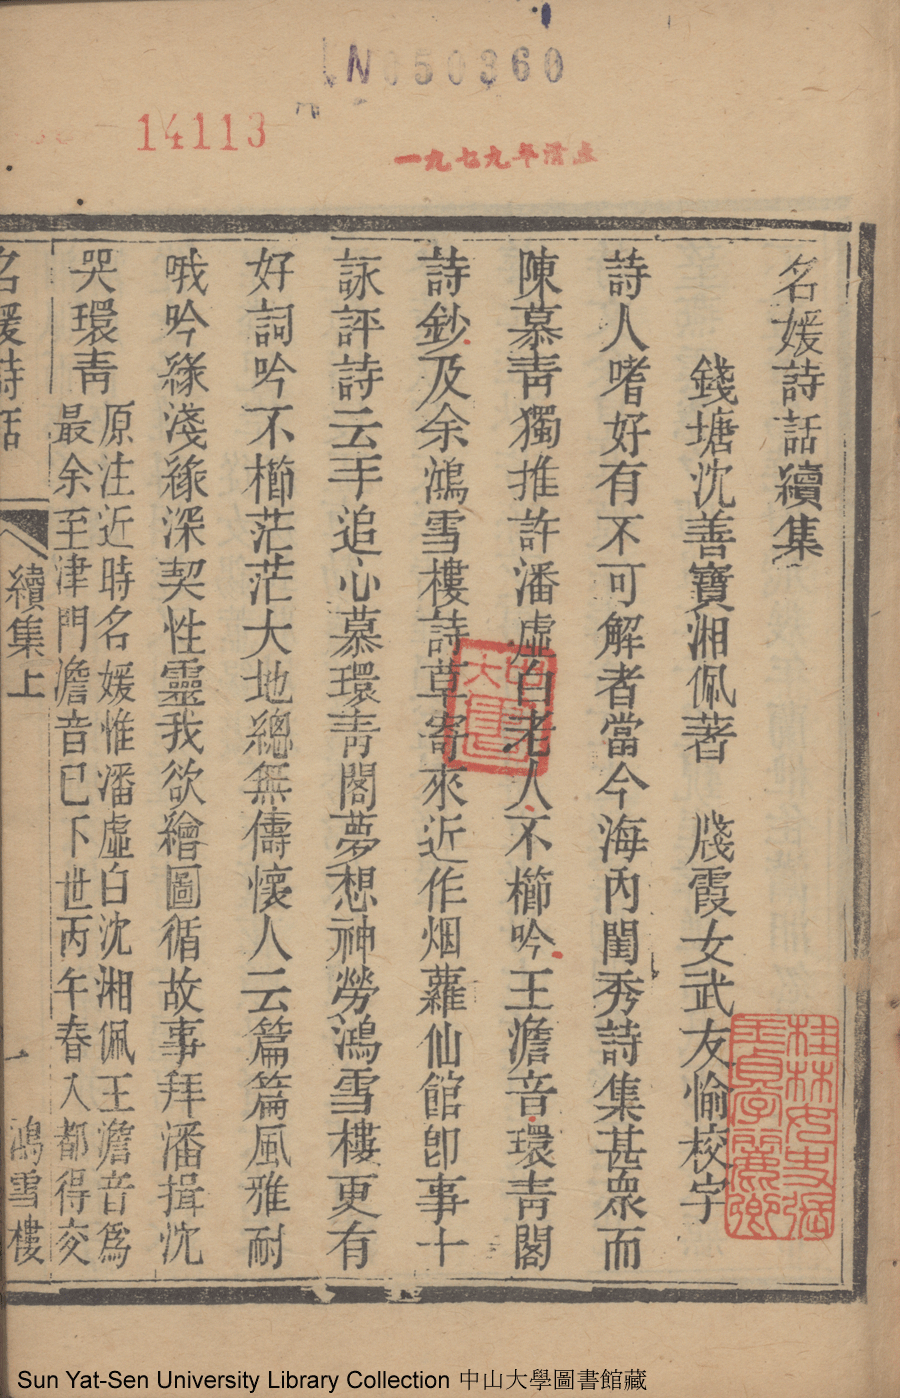 N050360
14113
一九七九年清点
名媛詩話續集
錢塘沈善寶湘佩著 牋霞女武友愉校字
詩人嗜好有不可解者當今海內閨秀詩集甚衆而
陳慕青獨推許潘虛白老人不櫛吟王澹音環青閣
詩鈔及余鴻雪樓詩草寄來近作烟蘿仙館卽事十
詠評詩云手追心慕環青閣夢想神勞鴻雪樓更有
好詞吟不櫛茫茫大地總無儔懷人云篇篇風雅耐
哦吟緣淺緣深契性靈我欲繪圖循故事拜潘揖沈
哭環青
原注近時名媛惟潘虛白沈湘佩王澹音爲
最余至津門澹音已下世丙午春入都得交
名媛詩話
續集上
一
鴻雪樓
Sun Yat-Sen University Library Collection 中山大學圖書館藏